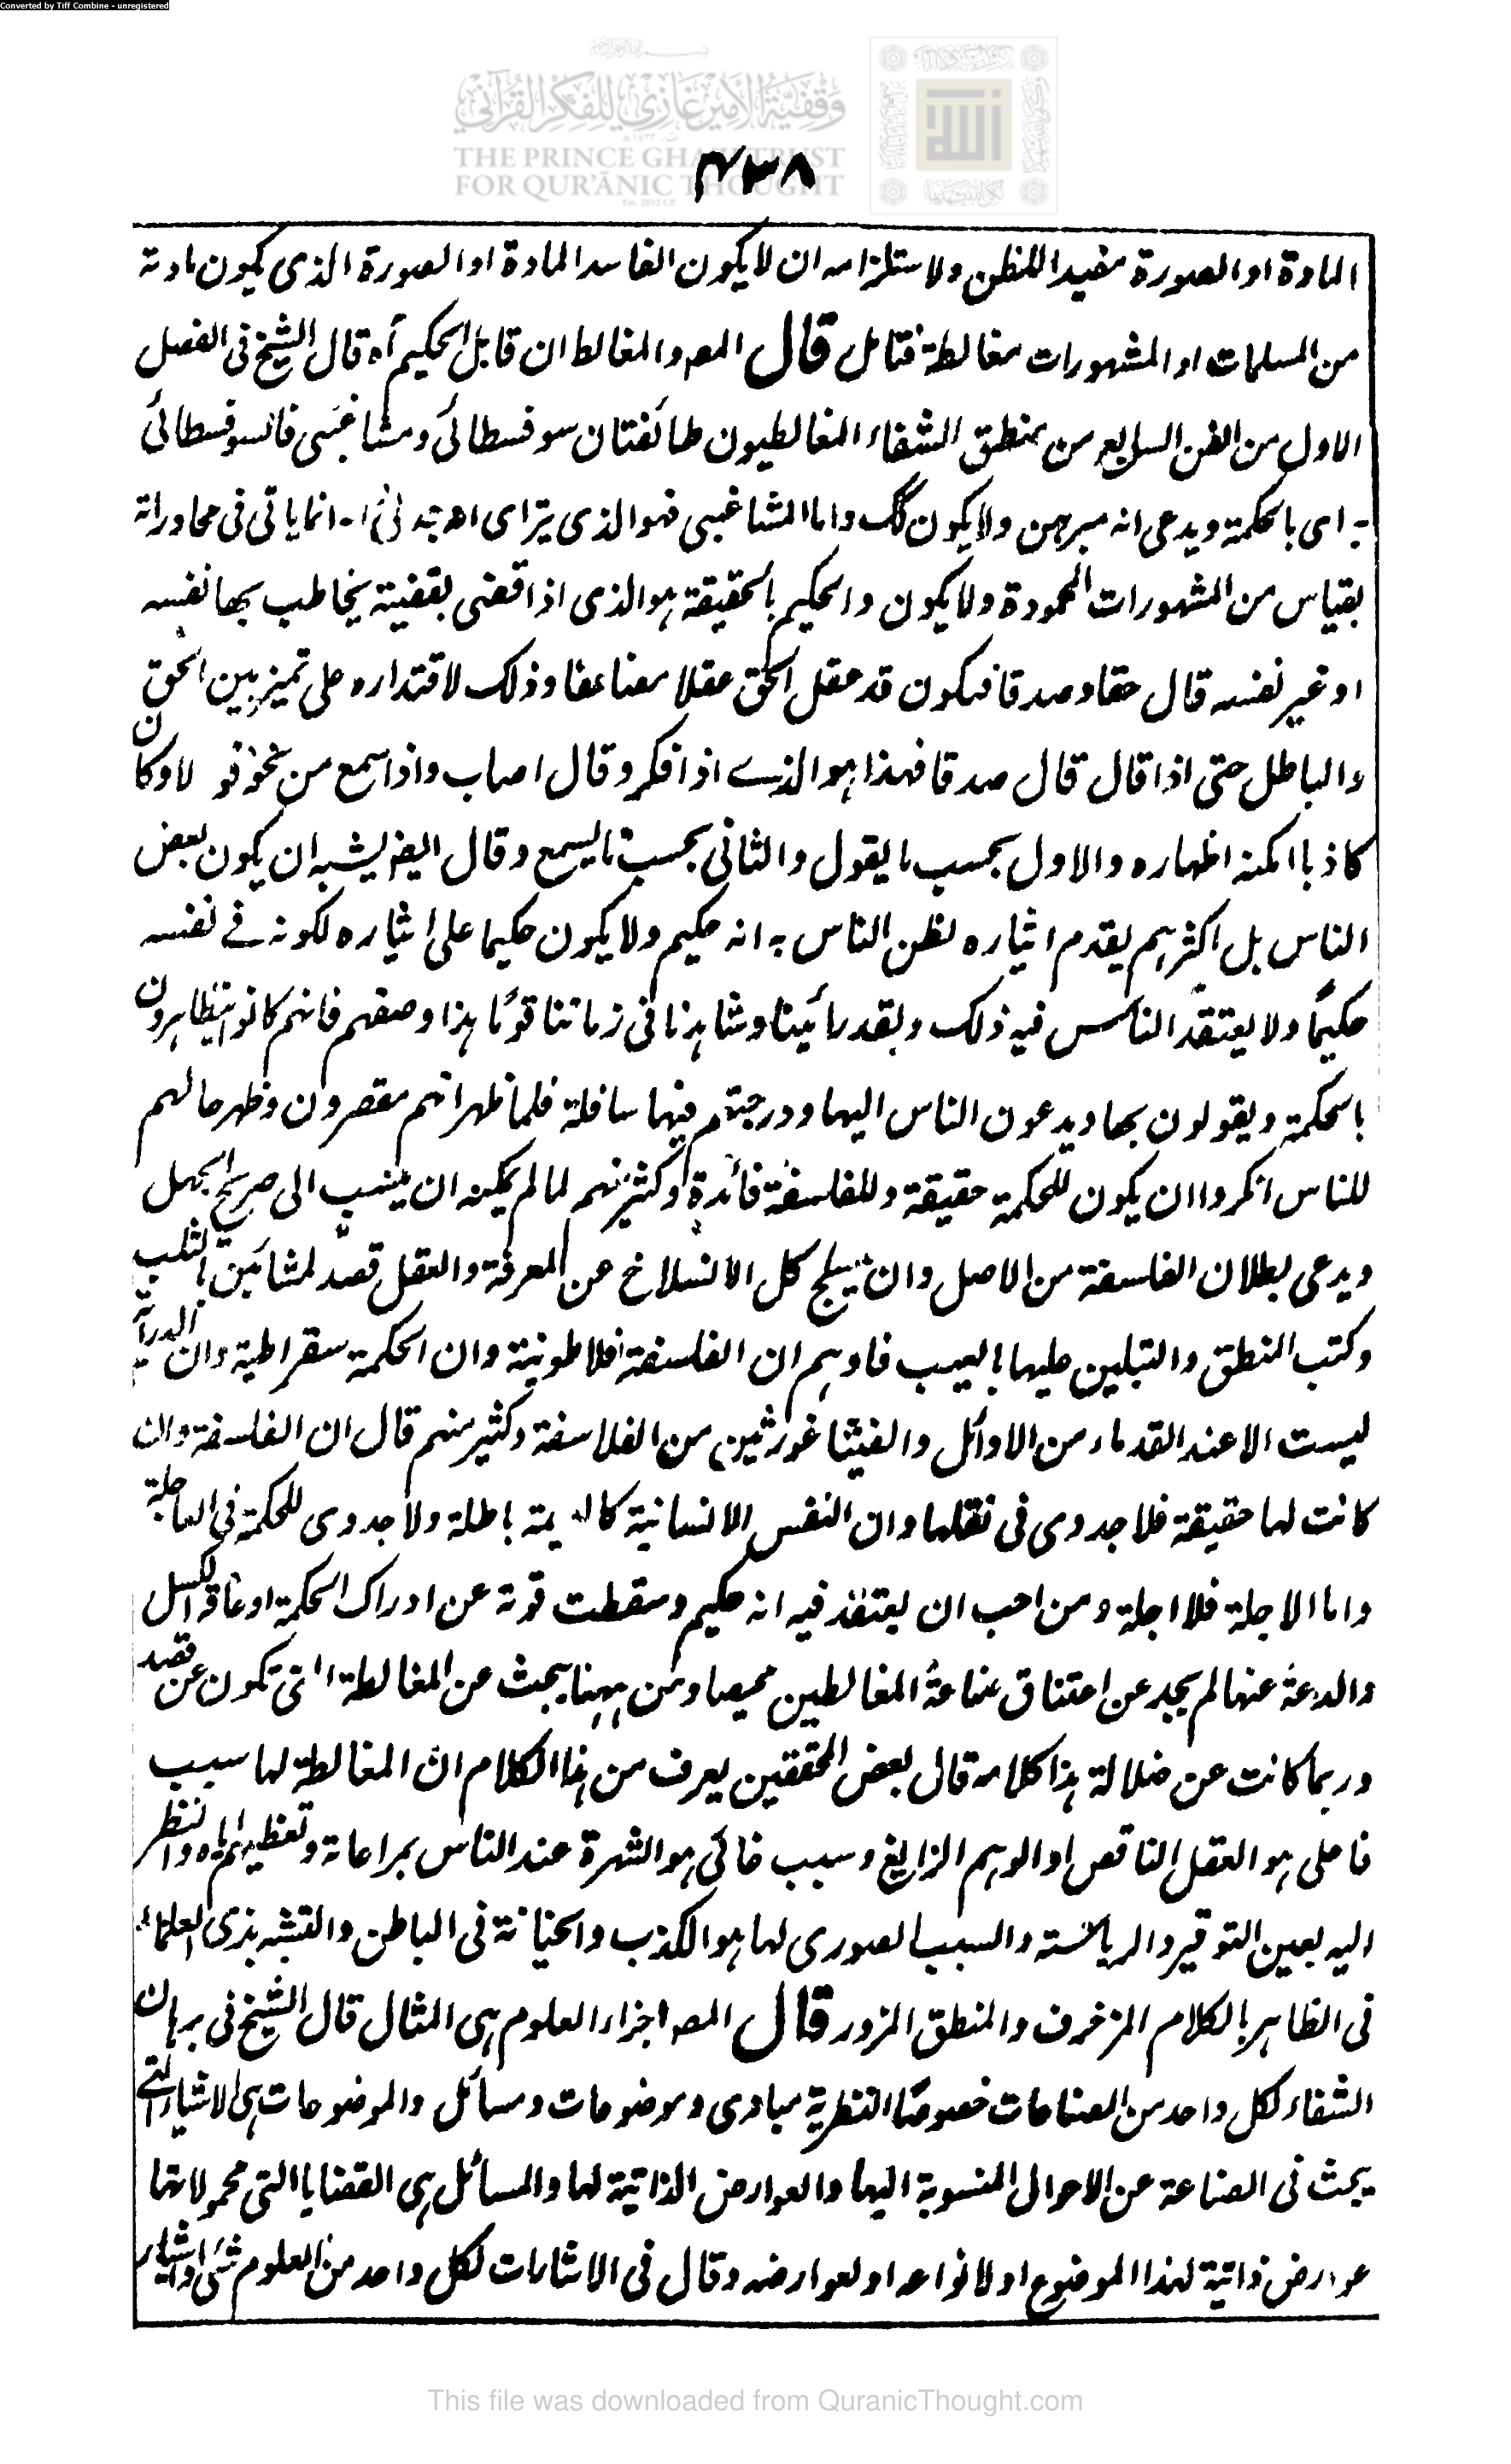 Converted by Tiff Combine - unregistered
وقفية الأمير غازي للفكر القرآني
THE PRINCE GHAZI TRUST
FOR QUR'ĀNIC THOUGHT
٤٣٨
المادة او الصورة مفيدا للظن ولاستلزامه ان لا يكون الفاسد المادة او الصورة الذى يكون مادته
من المسلمات او المشهورات مغالطة فتامل قال المصـ والمغالط ان قابل الحكيم آه قال الشيخ فى الفصل
الاول من الفن السابع من منطق الشفاء المغالطيون طائفتان سوفسطائى ومشاغبى فالسوفسطائى
اى بالحكمة ويدعى انه مبرهن ولا يكون كك واما المشاغبى فهو الذى يترااى انه جدلى انما ياتى فى محاوراته
بقياس من المشهورات المحمودة ولا يكون والحكيم بالحقيقة هو الذى اذا قضى بقضية يخاطب بها نفسه
او غير نفسه قال حقا وصدقا فيكون قد عقل الحق عقلا مضاعفا وذلك لاقتداره على تميز بين الحق
والباطل حتى اذا قال قال صدقا فهذا هو الذى اذا فكر وقال اصاب واذا سمع من غيره قولا وكان
كاذبا امكنه اظهاره والاول بحسب ما يقول والثانى بحسب ما يسمع وقال ايضا يشبه ان يكون بعض
الناس بل اكثرهم يقدم ايثاره لظن الناس به انه حكيم ولا يكون حكيما على ايثاره لكونه فى نفسه
حكيمًا ولا يعتقد الناس فيه ذلك ولقد رأينا وشاهدنا فى زماننا قومًا هذا وصفهم فانهم كانوا يتظاهرون
بالحكمة ويقولون بها ويدعون الناس اليها ودرجتهم فيها سافلة فلما ظهر انهم مقصرون وظهر حالهم
للناس انكروا ان يكون للحكمة حقيقة وللفلسفة فائدة وكثير منهم لما لم يمكنه ان ينسب الى صريح الجهل
ويدعى بطلان الفلسفة من الاصل وان ينسلخ كل الانسلاخ عن المعرفة والعقل قصد المشائين بالثلب
وكتب المنطق والتبلين عليها بالعيب فاوهم ان الفلسفة افلاطونية وان الحكمة سقراطية وان الدراية
ليست الا عند القدماء من الاوائل والفيثاغورثيين من الفلاسفة وكثير منهم قال ان الفلسفة وان
كانت لها حقيقة فلا جدوى فى نقلها وان النفس الانسانية كالبهيمة باطلة ولا جدوى للحكمة فى العاجلة
واما الاجلة فلا اجلة ومن احب ان يعتقد فيه انه حكيم وسقطت قوته عن ادراك الحكمة او عاقه الكسل
والدعة عنها لم يجد عن اعتناق صناعة المغالطين محيصا ومن ههنا يبحث عن المغالطة التى تكون عن قصد
وربما كانت عن ضلالة هذا كلامه قال بعض المحققين يعرف من هذا الكلام ان المغالطة لها سبب
فاعلى هو العقل الناقص او الوهم الزايغ وسبب غائى هو الشهرة عند الناس بمراعاته وتعظيم اياه والنظر
اليه بعين التوقير والرياسة والسبب الصورى لها هو الكذب والخيانة فى الباطن والتشبه بزى العلماء
فى الظاهر بالكلام المزخرف والمنطق المزور قال المصـ اجزاء العلوم هى المثال قال الشيخ فى برهان
الشفاء لكل واحد من الصناعات خصوصًا النظرية مبادى وموضوعات ومسائل والموضوعات هى الاشياء التى
يبحث فى الصناعة عن الاحوال المنسوبة اليها والعوارض الذاتية لها والمسائل هى القضايا التى محمولاتها
عوارض ذاتية لهذا الموضوع او لانواعه او لعوارضه وقال فى الاشارات لكل واحد من العلوم شئ او اشياء
This file was downloaded from QuranicThought.com